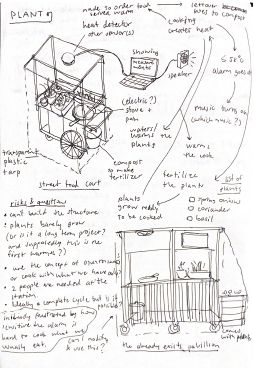 PLANT
made to order food
served warm
heat detector
other sensor(s)
cooking
creates heat
leftover
goes to compost
showing
speaker
≤ 50°
alarm goes off
(electric?)
stove +
pan
music turns on
(which music?)
waters/
warms the
plants
warms
the cook
transparent
plastic
tarp
compost
to make
fertilizer
street food cart
fertilize
the plants
list of
plants
spring onions
coriander
basil
plants
grow ready
to be cooked
risks & question
• can't build the structure
• plants barely grow
(or is it a long term project?
and supposedly this is the
first summer?)
• use the concept of
or cook with what we have
• 2 people we needed at the
station
• Ideally a complete cycle but is it
possible
frustrated by how
sensitive the alarm is
hard to cook what we
usually eat.
can I modify
& use this?
the already exists pavillion